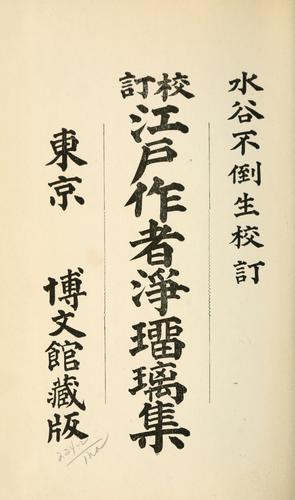 水谷不倒生校訂
校訂
江戸作者淨瑠璃集
東京 博文館藏版